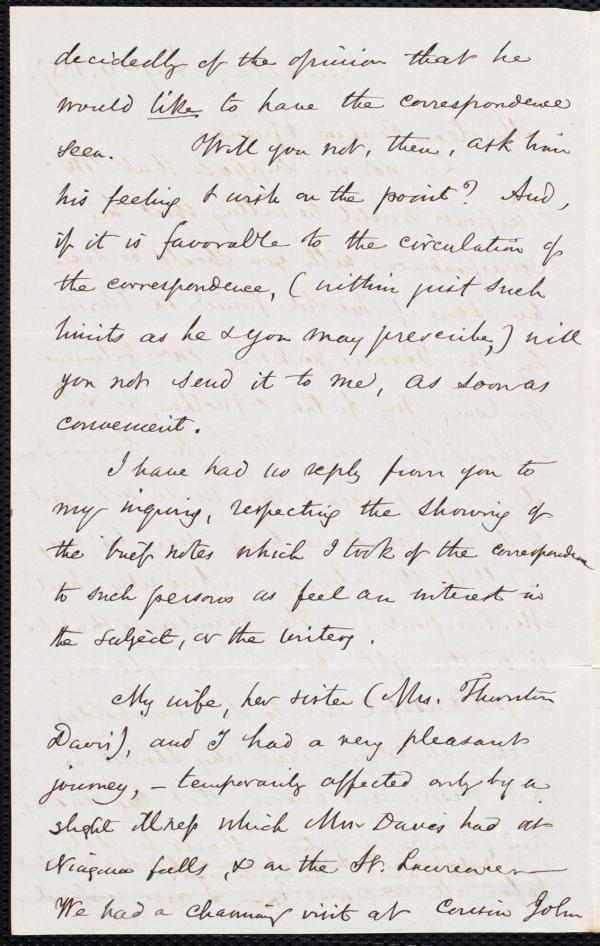 decidedly of the opinion that he
would like to have the correspondence
seen. Will you not, then, ask him
his feeling & wish on the point? And,
if it is favorable to the circulation of
the correspondence, (within just such
limits as he & you may prescribe,) will
you not send it to me, as soon as
convenient.
I have had no reply from you to
my inquiry, respecting the showing of
the brief notes which I took of the correspondence
to such persons as feel an interest in
the subject, or the writers.
My wife, her sister (Mrs. Thornton
Davis), and I had a very pleasant
journey, – temporarily affected only by a
slight illness which Mrs Davis had at
Niagara falls, & on the St. Lawrence –
We had a charming visit at Cousin John